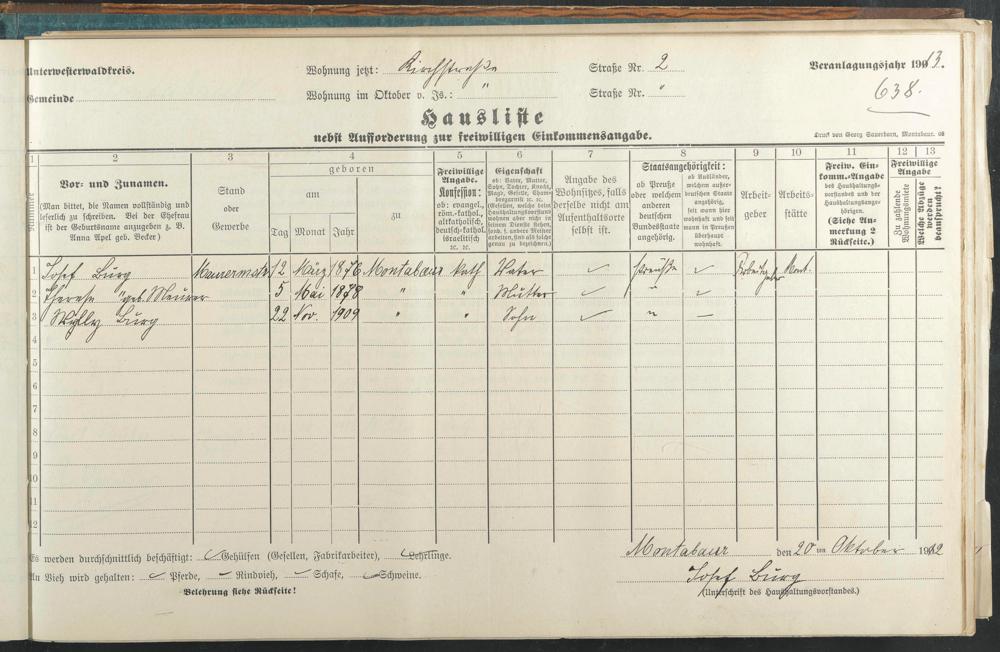 Unterwesterwaldkreis.
Wohnung jetzt: Kirchstraße Straße Nr. 2
Veranlagungsjahr 1913.
Gemeinde
Wohnung im Oktober v. Js.: " Straße Nr. "
638.
Hausliste
nebst Aufforderung zur freiwilligen Einkommensangabe.
Druck von Georg Sauerborn, Montabaur. 08
1 2 3 4 5 6 7 8 9 10 11 12 13
Nummer
Vor- und Zunamen.
(Man bittet, die Namen vollständig und
leserlich zu schreiben. Bei der Ehefrau
ist der Geburtsname anzugeben z. B.
Anna Apel geb. Becker)
Stand
oder
Gewerbe
geboren
am
Tag Monat Jahr
zu
Freiwillige
Angabe.
Konfession:
ob: evangel.,
röm.-kathol.,
altkatholisch,
deutsch-kathol.
israelitisch
ec. ec.
Eigenschaft
ob: Vater, Mutter,
Sohn, Tochter, Knecht,
Magd, Geselle, Cham-
bergarnist ec. ec.
genau zu bezeichnen.)
Angabe des
Wohnsitzes, falls
derselbe nicht am
Aufenthaltsorte
selbst ist.
Staatsangehörigkeit:
ob Preuße
oder welchem
anderen
deutschen
Bundesstaate
angehörig.
ob Ausländer,
welchem außer-
deutschen Staate
angehörig,
seit wann hier
wohnhaft und seit
wann in Preußen
überhaupt
wohnhaft.
Arbeit-
geber
Arbeits-
stätte
Freiw. Ein-
komm.-Angabe
des Haushaltungs-
vorstandes und der
Haushaltungsange-
hörigen.
(Siehe An-
merkung 2
Rückseite.)
Freiwillige
Angabe
Zu zahlende
Wohnungsmiete
Welche Abzüge
werden
beansprucht?
1 Josef Burg Maurermstr 12 März 1876 Montabaur kath Vater Preuße Mont.
2 Therese " geb. Meurer 5 Mai 1878 " " Mutter "
3 Willy Burg 22 Nov. 1909 " " Sohn "
4
5
6
7
8
9
10
11
12
Es werden durchschnittlich beschäftigt: Gehülfen (Gesellen, Fabrikarbeiter), Lehrlinge.
Montabaur den 20 ten Oktober 1912
An Vieh wird gehalten: Pferde, Rindvieh, Schafe, Schweine.
Josef Burg
Belehrung siehe Rückseite!
(Unterschrift des Haushaltungsvorstandes.)